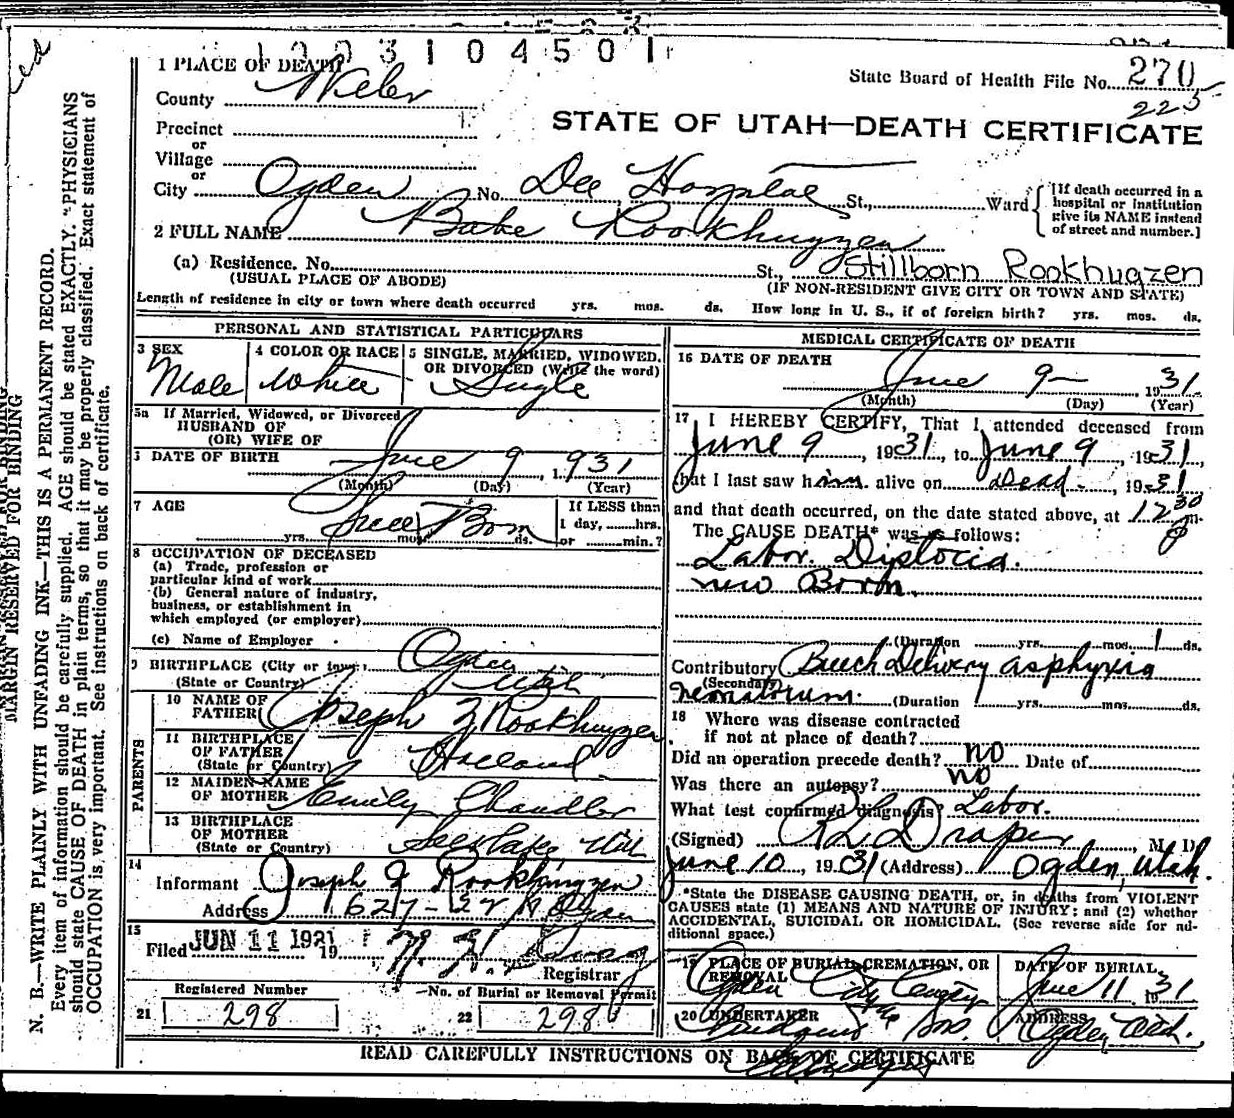 1003104501
1 PLACE OF DEATH
State Board of Health File No. 270
225
County Weber
STATE OF UTAH—DEATH CERTIFICATE
Precinct
or
Village
or
City Ogden No. Dee Hospital St., Ward
[If death occurred in a
hospital or institution
give its NAME instead
of street and number.]
2 FULL NAME Babe Rookhuyzen
(a) Residence. No. St., Stillborn Rookhuyzen
(USUAL PLACE OF ABODE) (IF NON-RESIDENT GIVE CITY OR TOWN AND STATE)
Length of residence in city or town where death occurred yrs. mos. ds. How long in U. S., if of foreign birth? yrs. mos. ds.
PERSONAL AND STATISTICAL PARTICULARS
3 SEX Male
4 COLOR OR RACE White
5 SINGLE, MARRIED, WIDOWED,
OR DIVORCED (Write the word)
Single
5a If Married, Widowed, or Divorced
HUSBAND OF
(OR) WIFE OF
DATE OF BIRTH June 9 1931
(Month) (Day) (Year)
7 AGE Still Born
yrs. mos. ds.
If LESS than
1 day, hrs.
or min.?
8 OCCUPATION OF DECEASED
(a) Trade, profession or
particular kind of work
(b) General nature of industry,
business, or establishment in
which employed (or employer)
(c) Name of Employer
9 BIRTHPLACE (City or town) Ogden
(State or Country) Utah
PARENTS
10 NAME OF
FATHER Joseph Rookhuyzen
11 BIRTHPLACE
OF FATHER
(State or Country) Holland
12 MAIDEN NAME
OF MOTHER Emily Chandler
13 BIRTHPLACE
OF MOTHER
(State or Country) Salt Lake, Utah
14
Informant Joseph Rookhuyzen
Address 627-22 Ogden
15
Filed JUN 11 1931 19
Registrar
Registered Number
21 298
No. of Burial or Removal Permit
22 298
MEDICAL CERTIFICATE OF DEATH
16 DATE OF DEATH
June 9 1931
(Month) (Day) (Year)
17 I HEREBY CERTIFY, That I attended deceased from
June 9, 1931, to June 9, 1931,
that I last saw him alive on Dead, 1931
and that death occurred, on the date stated above, at 12 30 P m.
The CAUSE DEATH* was as follows:
Labor. Distocia.
new Born.
(Duration yrs. mos. 1 ds.
Contributory Breech Delivery asphyxia
(Secondary)
neonatorum. (Duration yrs. mos. ds.
18 Where was disease contracted
if not at place of death?
Did an operation precede death? no Date of
Was there an autopsy? no
What test confirmed diagnosis? Labor.
(Signed) R L Draper, M. D.
June 10, 1931 (Address) Ogden, Utah.
*State the DISEASE CAUSING DEATH, or, in deaths from VIOLENT
CAUSES state (1) MEANS AND NATURE OF INJURY; and (2) whether
ACCIDENTAL, SUICIDAL OR HOMICIDAL. (See reverse side for ad-
ditional space.)
19 PLACE OF BURIAL, CREMATION, OR
REMOVAL
Ogden City Cemetery
DATE OF BURIAL
June 11 1931
20 UNDERTAKER
ADDRESS
Ogden Utah.
READ CAREFULLY INSTRUCTIONS ON BACK OF CERTIFICATE
MARGIN RESERVED FOR BINDING
N. B.—WRITE PLAINLY WITH UNFADING INK—THIS IS A PERMANENT RECORD.
Every item of information should be carefully supplied. AGE should be stated EXACTLY. PHYSICIANS
should state CAUSE OF DEATH in plain terms, so that it may be properly classified. Exact statement of
OCCUPATION is very important. See instructions on back of certificate.